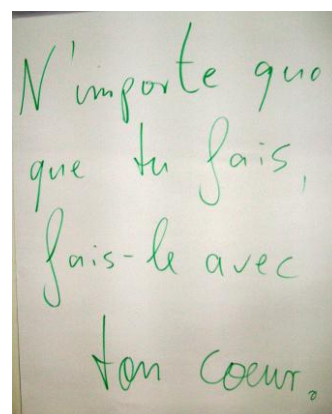 N'importe quo
que tu fais,
fais-le avec
ton coeur.